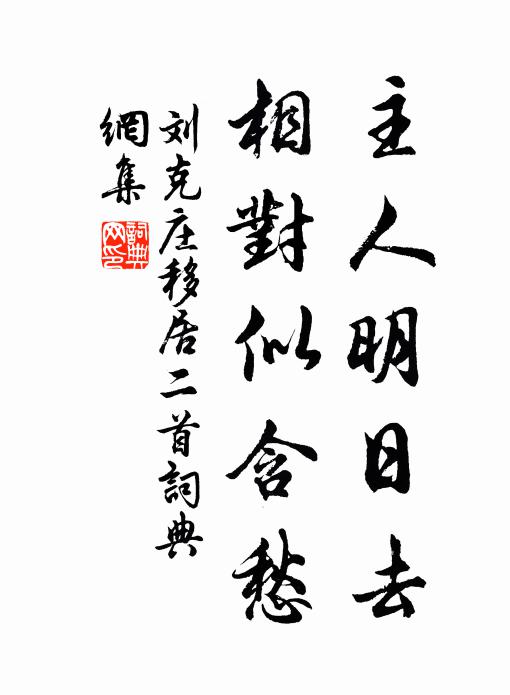 主人明日去
相對似含愁
刘克庄移居二首詞典
網集
詞典
网印